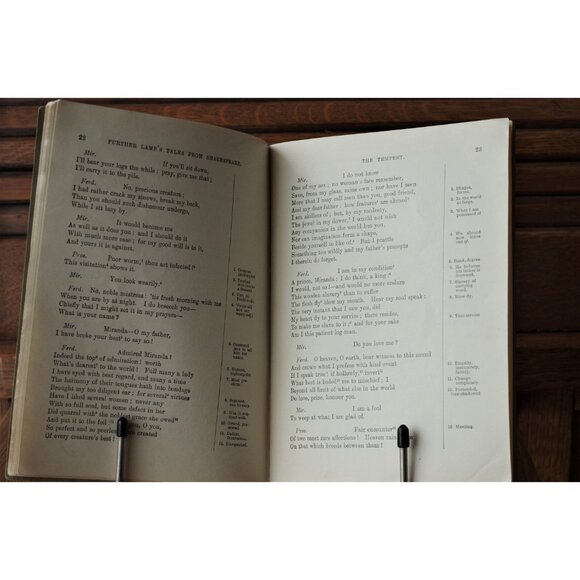 22
FURTHER LAMB'S TALES FROM SHAKESPEARE.
Mir. If you'll sit down,
I'll bear your logs the while; pray, give me that;
I'll carry it to the pile.
Ferd. No, precious creature;
I had rather crack my sinews, break my back,
Than you should such dishonour undergo,
While I sit lazy by.
Mir. It would become me
As well as it does you; and I should do it
With much more ease; for my good will is to it,
And yours it is against.
Pros. Poor worm, thou art infected!
This visitation shows it.
Mir. You look wearily.
Ferd. No, noble mistress; 'tis fresh morning with me
When you are by at night. I do beseech you—
Chiefly that I might set it in my prayers—
What is your name?
Mir. Miranda—O my father,
I have broke your hest to say so!
Ferd. Admired Miranda!
Indeed the top of admiration! worth
What's dearest to the world! Full many a lady
I have eyed with best regard, and many a time
The harmony of their tongues hath into bondage
Brought my too diligent ear: for several virtues
Have I liked several women; never any
With so full soul, but some defect in her
Did quarrel with the noblest grace she owed
And put it to the foil: O you,
So perfect and so peerless created
Of every creature's best!
THE TEMPEST.
23
Mir. I do not know
One of my sex; no woman's face remember,
Save, from my glass, mine own; nor have I seen
More that I may call men than you, good friend,
And my dear father: how features are abroad
I am skilless of; but, by my modesty,
The jewel in my dower, I would not wish
Any companion in the world but you,
Nor can imagination form a shape,
Beside yourself to like of. But I prattle
Something too wildly and my father's precepts
I therein do forget.
Ferd. I am in my condition
A prince, Miranda; I do think, a king;
I would, not so!—and would no more endure
This wooden slavery than to suffer
The flesh-fly blow my mouth. Hear my soul speak:
The very instant that I saw you, did
My heart fly to your service; there resides,
To make me slave to it; and for your sake
Am I this patient log-man.
Mir. Do you love me?
Ferd. O heaven, O earth, bear witness to this sound
And crown what I profess with kind event
If I speak true! if hollowly, invert
What best is boded me to mischief; I
Beyond all limit of what else in the world
Do love, prize, honour you.
Mir. I am a fool
To weep at what I am glad of.
Pros. Fair encounter
Of two most rare affections! Heavens rain
On that which breeds between them!